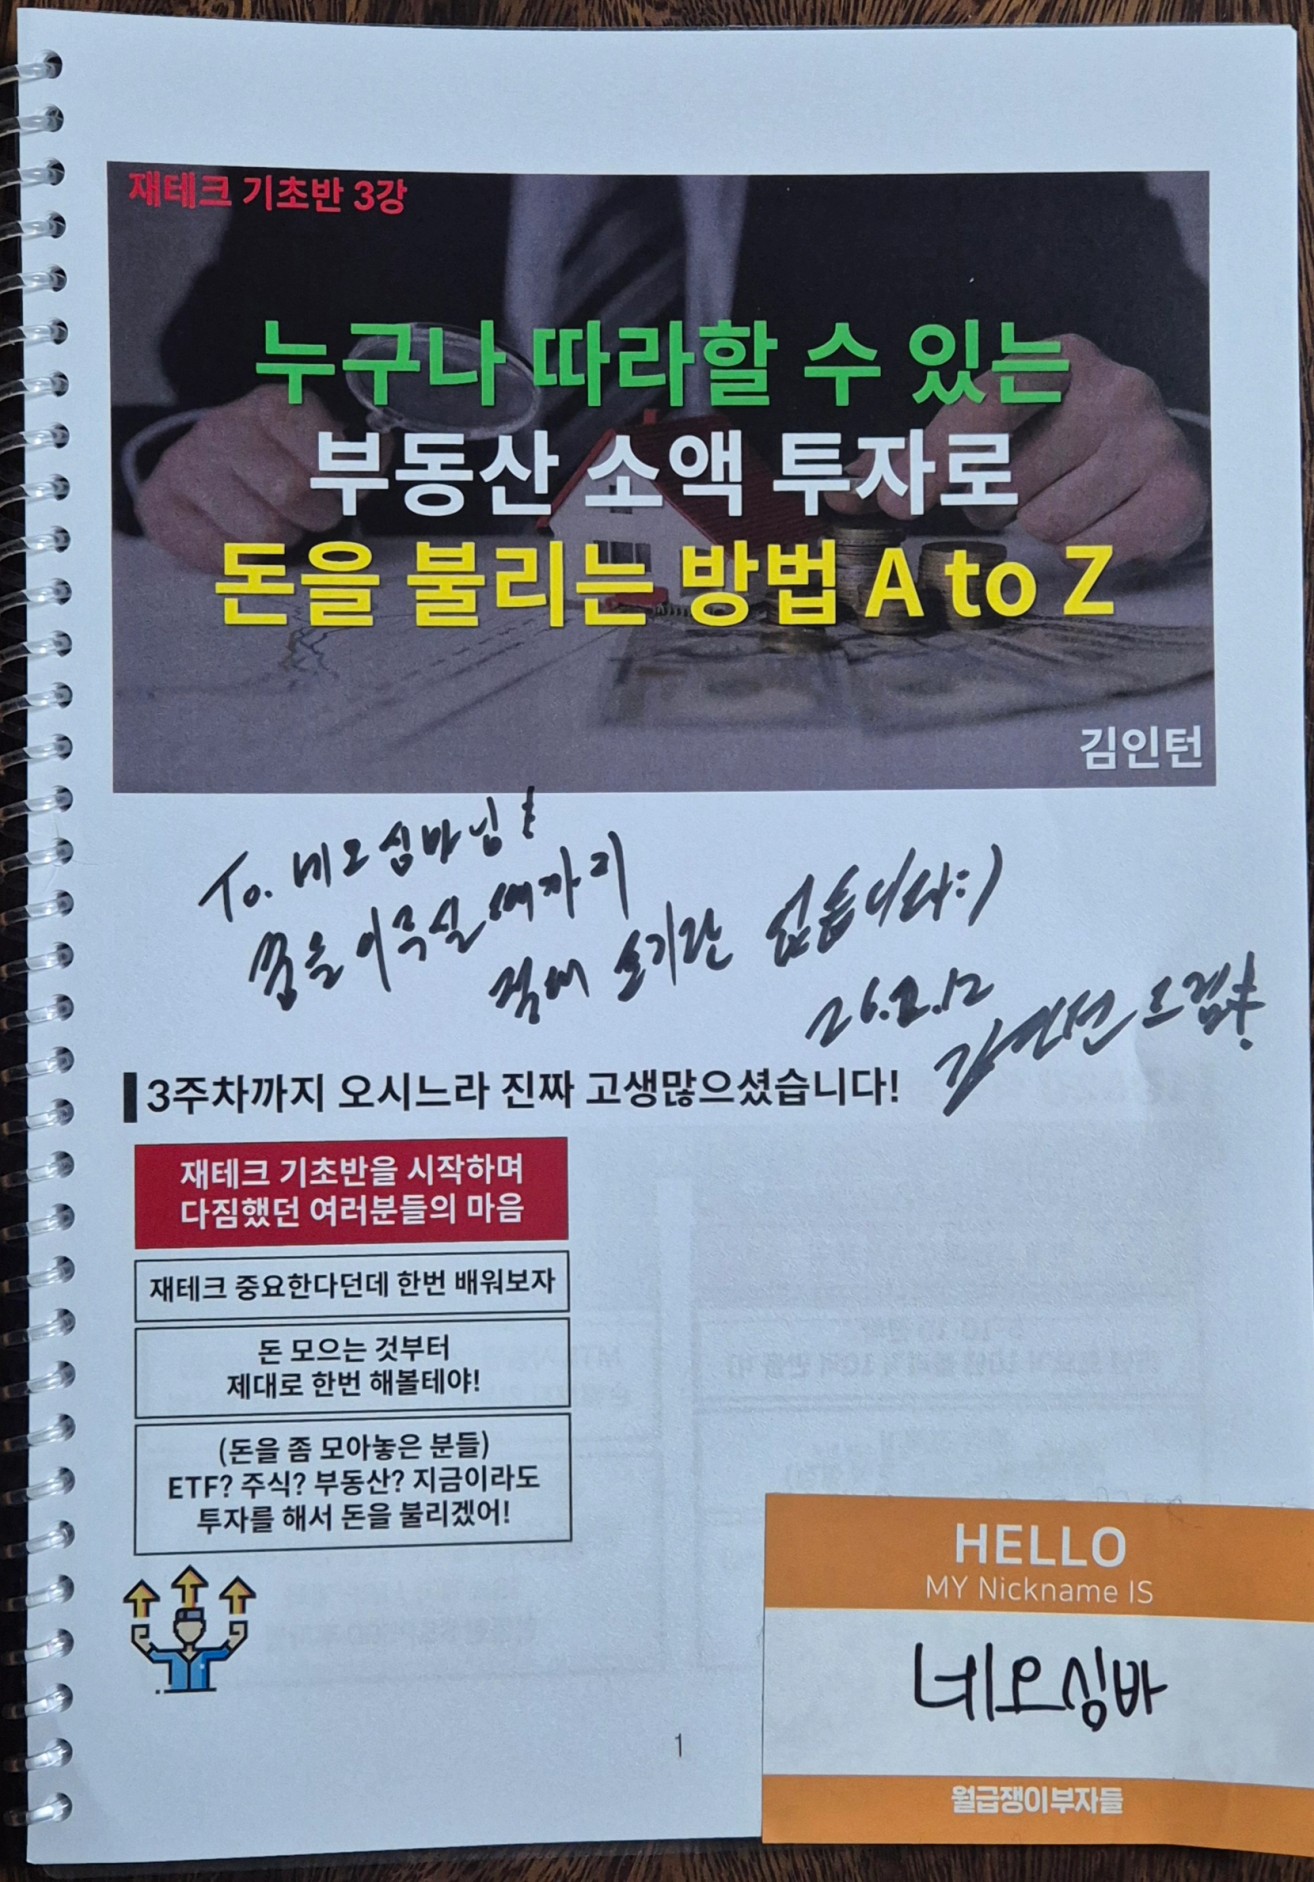 재테크 기초반 3강
누구나 따라할 수 있는
부동산 소액 투자로
돈을 불리는 방법 A to Z
김인턴
To. 네오심바님!
꿈을 이루실 때까지
절대 포기란 없습니다:)
26.2.12
김인턴 드림!
3주차까지 오시느라 진짜 고생많으셨습니다!
재테크 기초반을 시작하며
다짐했던 여러분들의 마음
재테크 중요한다던데 한번 배워보자
돈 모으는 것부터
제대로 한번 해볼테야!
(돈을 좀 모아놓은 분들)
ETF? 주식? 부동산? 지금이라도
투자를 해서 돈을 불리겠어!
HELLO
MY Nickname IS
네오심바
월급쟁이부자들
1